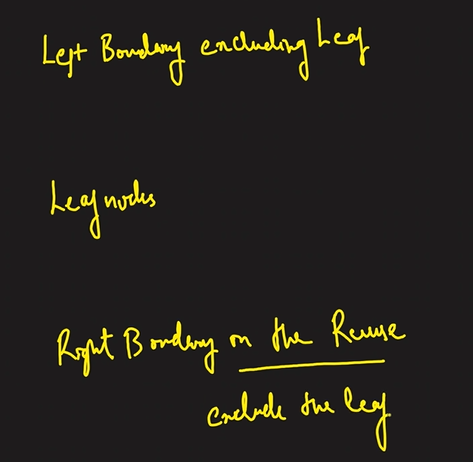 Left Boundary excluding Leaf
Leaf nodes
Right Boundary on the Reverse
exclude the leaf